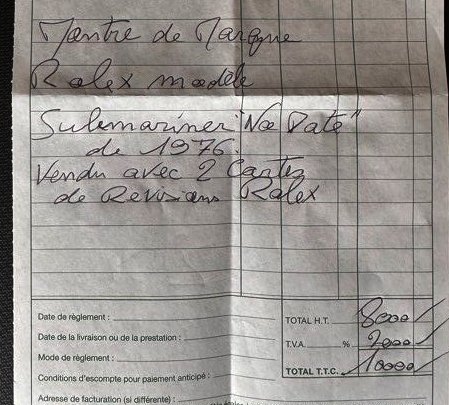 Montre de Marque
Rolex modele
Submariner "No Date"
de 1976.
Vendu avec 2 Cartes
de Revisions Rolex
Date de règlement :
Date de la livraison ou de la prestation :
Mode de règlement :
Conditions d'escompte pour paiement anticipé :
Adresse de facturation (si différente) :
TOTAL H.T. 8000/
T.V.A. % 2000/
TOTAL T.T.C. 10000/